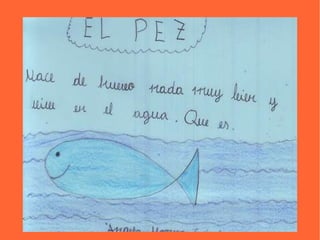 EL PEZ
Nace de huevo nada muy bien y
vive en el agua. Que es.